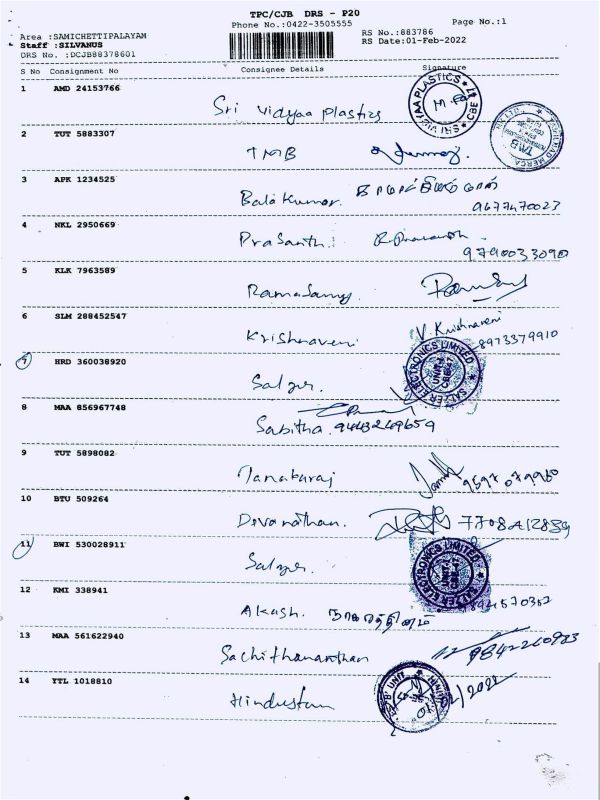 TPC/CJB DRS - P20
Phone No.:0422-3505555 Page No.:1
Area :SAMICHETTIPALAYAM RS No.:883786
Staff :SILVANUS RS Date:01-Feb-2022
DRS No. :DCJB88378601
S No Consignment No Consignee Details Signature
1 AMD 24153766
Sri Vidyaa Plastics
SRI VIDYAA PLASTICS CBE
2 TUT 5883307
TMB
TMB
3 APK 1234525
Bala Kumar.
9677470023
4 NKL 2950669
Prasanth. R. Prasanth
9790033090
5 KLK 7963589
Ramasamy
6 SLM 288452547
Krishnaveni V. Krishnaveni
8973379910
7 HRD 360038920
Salzer.
SALZER ELECTRONICS LIMITED
8 MAA 856967748
Sabitha. 9443249659
9 TUT 5898082
Janakaraj
10 BTU 509264
Devanathan. 7708412839
11 BWI 530028911
Salzer.
SALZER ELECTRONICS LIMITED
12 KMI 338941
Akash.
13 MAA 561622940
Sachithananthan 9842260933
14 YTL 1018810
Hindustan
UNIT